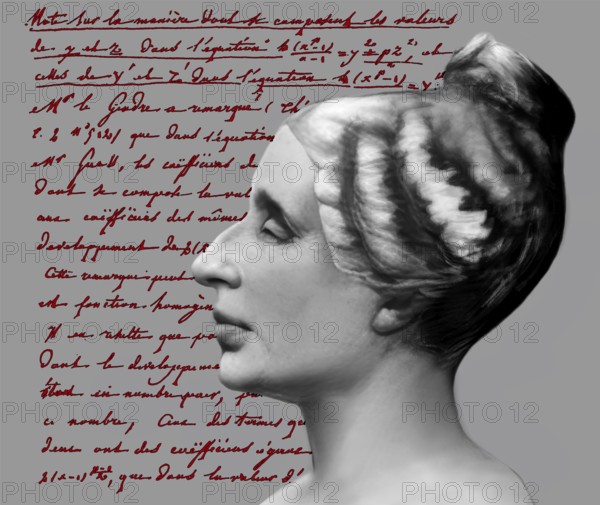 Note sur la manière dont se composent les valeurs
de y et z dans l'équation 4(xᵖ-1)/(x-1) = y² ± pz², et
celles de Y' et Z' dans l'équation 4(xᵖ-1)
Mr le Gendre a remarqué (
que dans l'équation
Mr Gauss, les coëfficiens de
dont se compose la val
aux coëfficiens des mêmes
developpement de
Cette remarque peut
est fonction homogèn
Il en résulte que po
dans le developpeme
in nombre pair, p
ce nombre, Cinq des termes que
deux ont des coëfficiens égaux
que dans la valeur d'
PHOTO 12